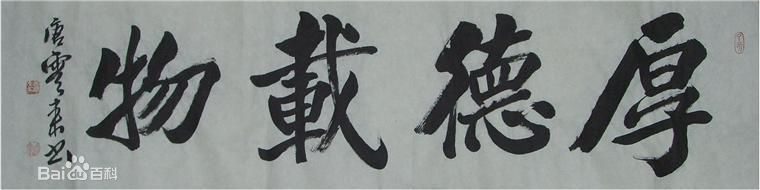 厚德載物
唐雲来书
Bai百科